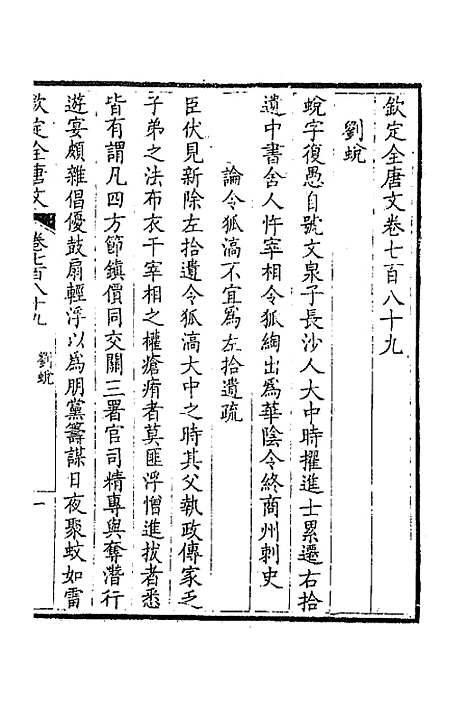 欽定全唐文卷七百八十九
劉蛻
蛻字復愚自號文泉子長沙人大中時擢進士累遷右拾
遺中書舍人忤宰相令狐綯出爲華陰令終商州刺史
論令狐滈不宜爲左拾遺疏
臣伏見新除左拾遺令狐滈大中之時其父執政傳家乏
子弟之法布衣干宰相之權瘡痏者莫匪浮憎進拔者悉
皆有謂凡四方節鎮價同交關三署官司精專與奪潛行
遊宴頗雜倡優鼓扇輕浮以爲朋黨籌謀日夜聚蚊如雷
欽定全唐文 卷七百八十九 劉蛻 一